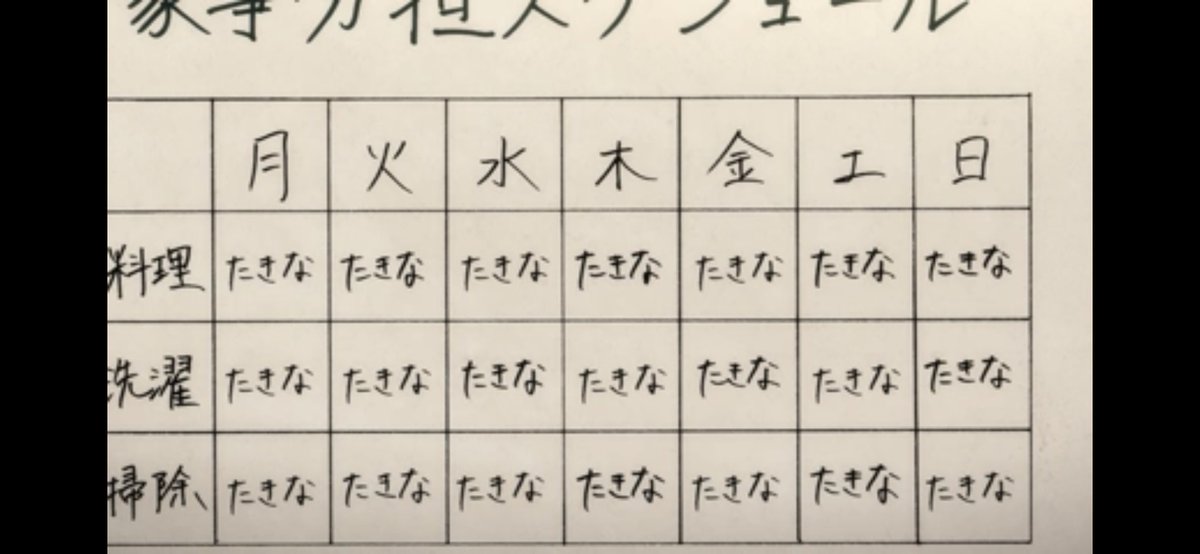 家事分担スケジュール
月 火 水 木 金 土 日
料理 たきな たきな たきな たきな たきな たきな たきな
洗濯 たきな たきな たきな たきな たきな たきな たきな
掃除 たきな たきな たきな たきな たきな たきな たきな